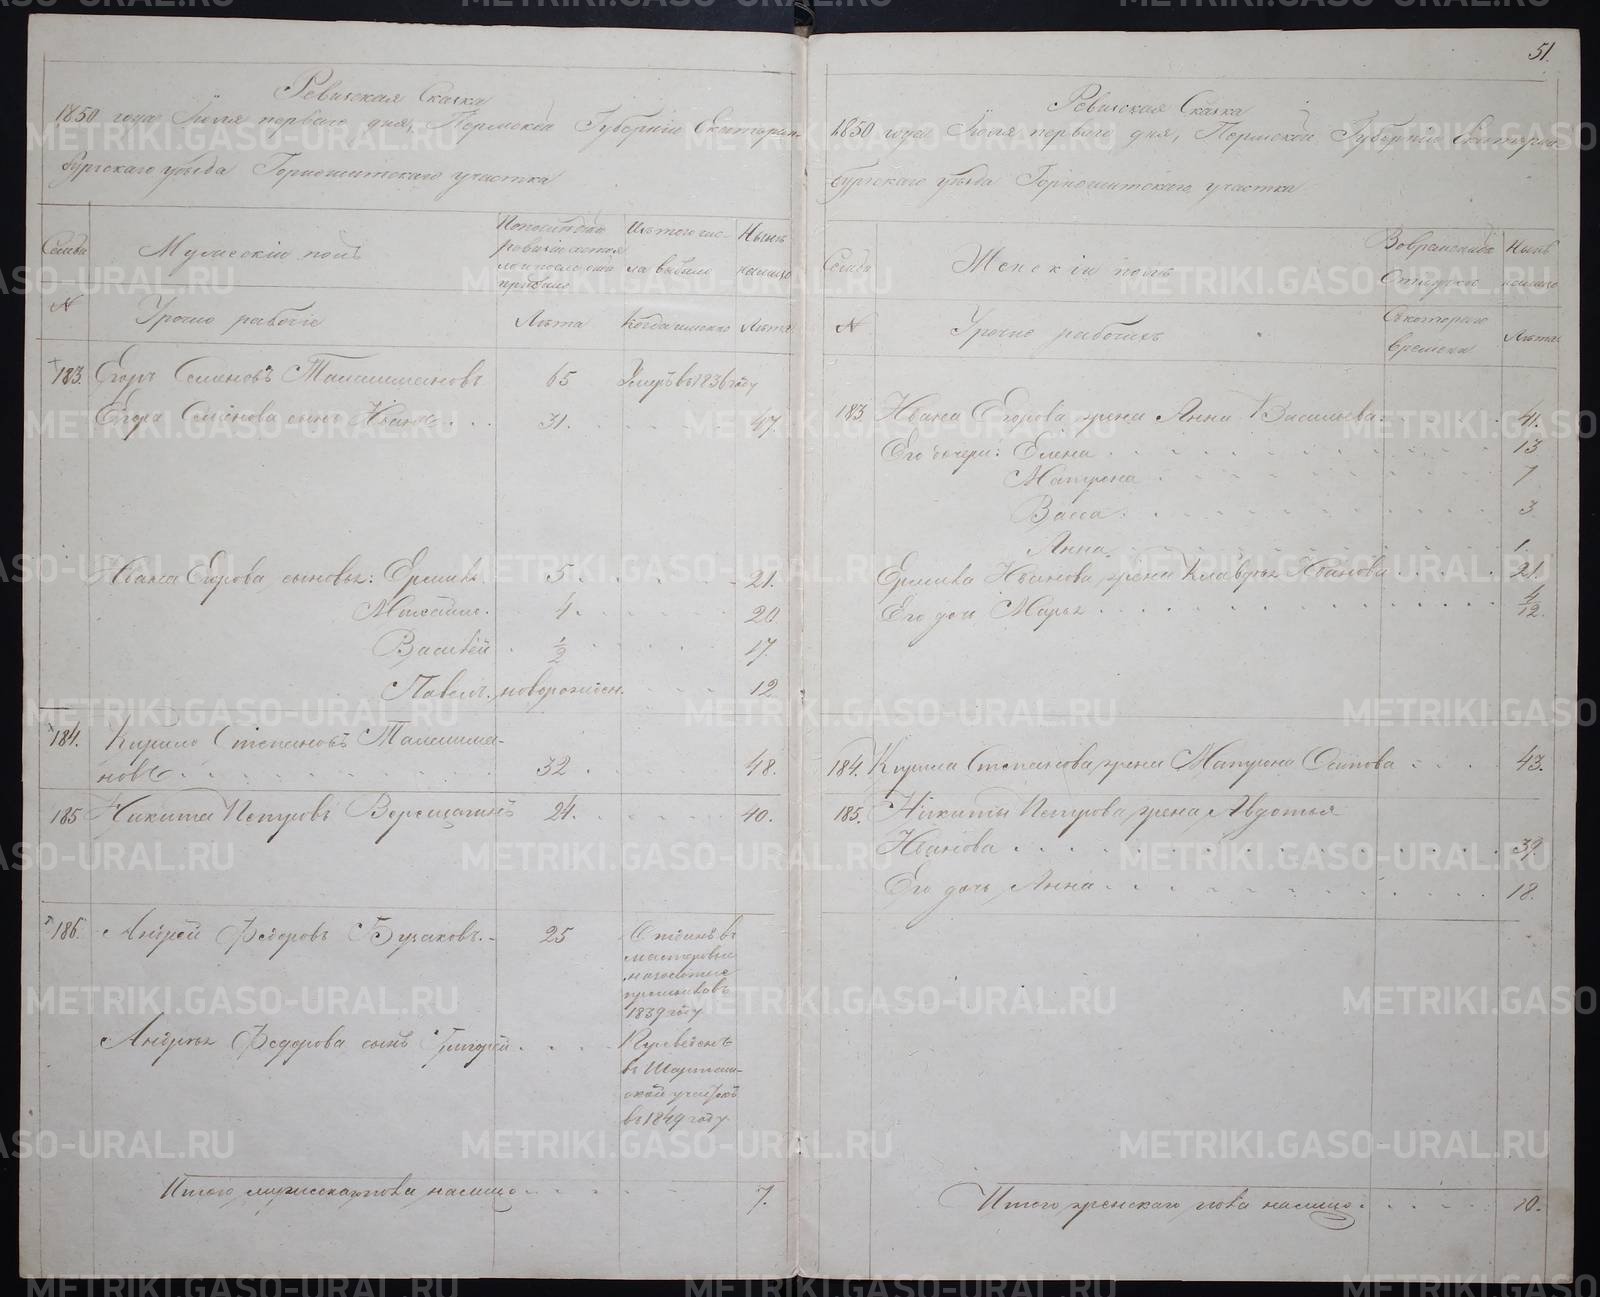 Ревизская Сказка
1850 года Іюля перваго дня, Пермской Губерніи Екатерин-
бургскаго уѣзда Горнощитскаго участка
Семьи
Мужескій полъ
По последней
ревизіи состоя
ло и после того
прибыло
Изъ того чис-
ла выбыло
Нынѣ
налицо
№
Урочно рабочіе
Лѣта
Когда именно
Лѣта
183. Егоръ Семеновъ Талашмановъ 65 Умеръ въ 1836 году
Егора Семенова сынъ Иванъ . . . 31. 47
Ивана Егорова сыновья: Ермилъ 5. 21.
Максимъ. 4. 20
Василей ½ 17
Павелъ новорожден. 12
184. Кирило Степановъ Талашма-
новъ 32 48.
185 Никита Петровъ Верещагинъ 24. 40.
186. Андрей Федоровъ Бузаковъ. 25
Отданъ въ
мастеровые
1839 году
Андрея Федорова сынъ Григорей
Переведенъ
въ Шарташ-
ской участокъ
въ 1849 году
Итого мужескаго пола налицо 7.
51.
Ревизская Сказка
1850 года Іюля перваго дня, Пермской Губерніи Екатерин-
бургскаго уѣзда Горнощитскаго участка
Семьи
Женскій полъ
Во временной
отлучкѣ
Нынѣ
налицо
№
Урочно рабочихъ
Съ котораго
времени
Лѣта
183 Ивана Егорова жена Анна Васильева. 41.
Его дочери: Елена 13
Матрена 7
Васса. 3
Анна. 1
Ермила Иванова жена Клавдея Иванова 21.
Его дочь Марья 4/12.
184. Кирила Степанова жена Матрена Осипова 43.
185. Никиты Петрова жена Авдотья
Иванова 39.
Его дочь Анна 18.
Итого женскаго пола налицо. 10.
METRIKI.GASO-URAL.RU